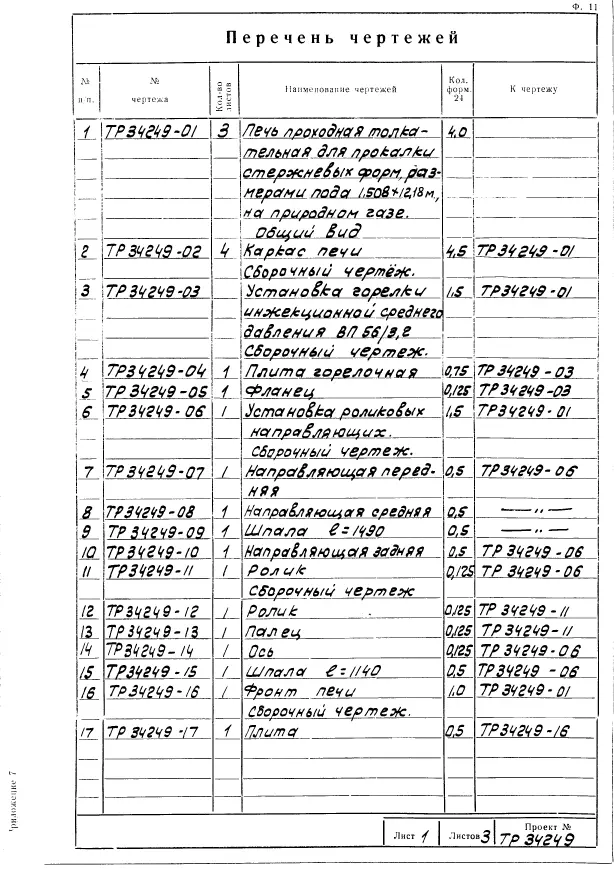 Ф. 11
Перечень чертежей
№ п/п. № чертежа Кол-во листов Наименование чертежей Кол. форм. 24 К чертежу
1 ТР34249-01 3 Печь проходная толка- 4,0
тельная для прокалки
стержневых форм, раз-
мерами пода 1,508×12,18м,
на природном газе.
Общий вид
2 ТР34249-02 4 Каркас печи 4,5 ТР34249-01
Сборочный чертёж.
3 ТР34249-03 Установка горелки 1,5 ТР34249-01
инжекционной среднего
давления ВП 56/3,2
Сборочный чертеж.
4 ТР34249-04 1 Плита горелочная 0,75 ТР34249-03
5 ТР34249-05 1 Фланец 0,125 ТР34249-03
6 ТР34249-06 1 Установка роликовых 1,5 ТР34249-01
направляющих.
Сборочный чертеж.
7 ТР34249-07 1 Направляющая перед- 0,5 ТР34249-06
няя
8 ТР34249-08 1 Направляющая средняя 0,5 —〃—
9 ТР34249-09 1 Шпала ℓ=1490 0,5 —〃—
10 ТР34249-10 1 Направляющая задняя 0,5 ТР 34249-06
11 ТР34249-11 1 Ролик 0,125 ТР 34249-06
Сборочный чертеж
12 ТР34249-12 1 Ролик 0,125 ТР 34249-11
13 ТР34249-13 1 Палец 0,125 ТР 34249-11
14 ТР34249-14 1 Ось 0,125 ТР 34249-06
15 ТР34249-15 1 Шпала ℓ=1140 0,5 ТР34249-06
16 ТР34249-16 1 Фронт печи 1,0 ТР34249-01
Сборочный чертеж.
17 ТР 34249-17 1 Плита 0,5 ТР34249-16
Лист 1 Листов 3 Проект №
ТР 34249
риложение 7